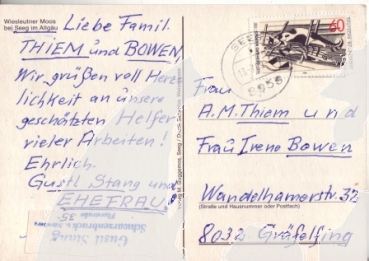 Wiesleutner Moos
bei Seeg im Allgäu
Liebe Famil.
THIEM und BOWEN,
Wir grüßen voll Herz
lichkeit an unsere
geschätzten Helfer
vieler Arbeiten!
Ehrlich.
Gustl Stang und
EHEFRAU.
Gustl Stang
60
SEEG
8959
Frau
A.M. Thiem und
Frau Irene Bowen
Wandelhamerstr. 32
(Straße und Hausnummer oder Postfach)
8032 Gräfelfing